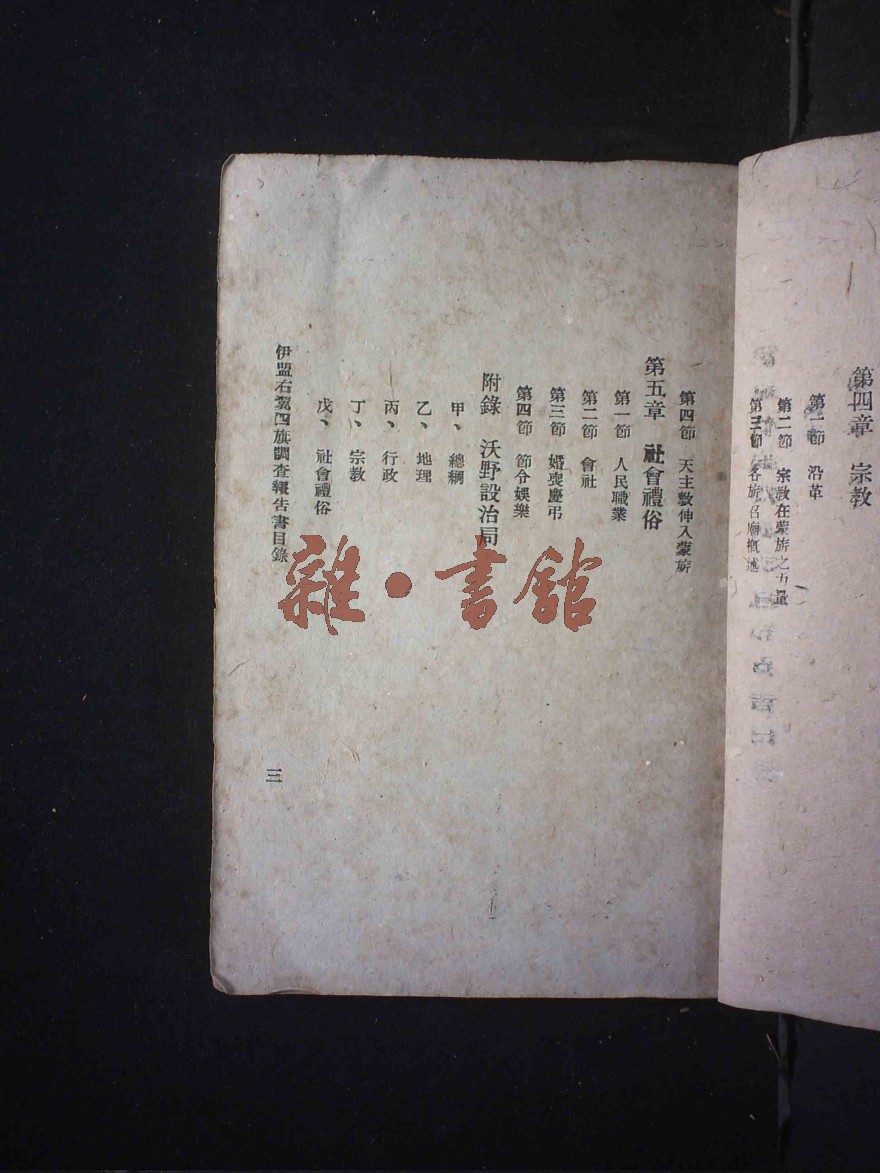 第四章　宗教
第一節　沿革
第二節　宗教在蒙旂之力量
第三節　各旂名廟概述
第四節　天主敎伸入蒙旂
第五章　社會禮俗
第一節　人民職業
第二節　會社
第三節　婚喪慶弔
第四節　節令娛樂
附錄　沃野設治局
甲、總綱
乙、地理
丙、行政
丁、宗教
戊、社會禮俗
伊盟右翼四旗調查報告書目錄
三
雜·書館